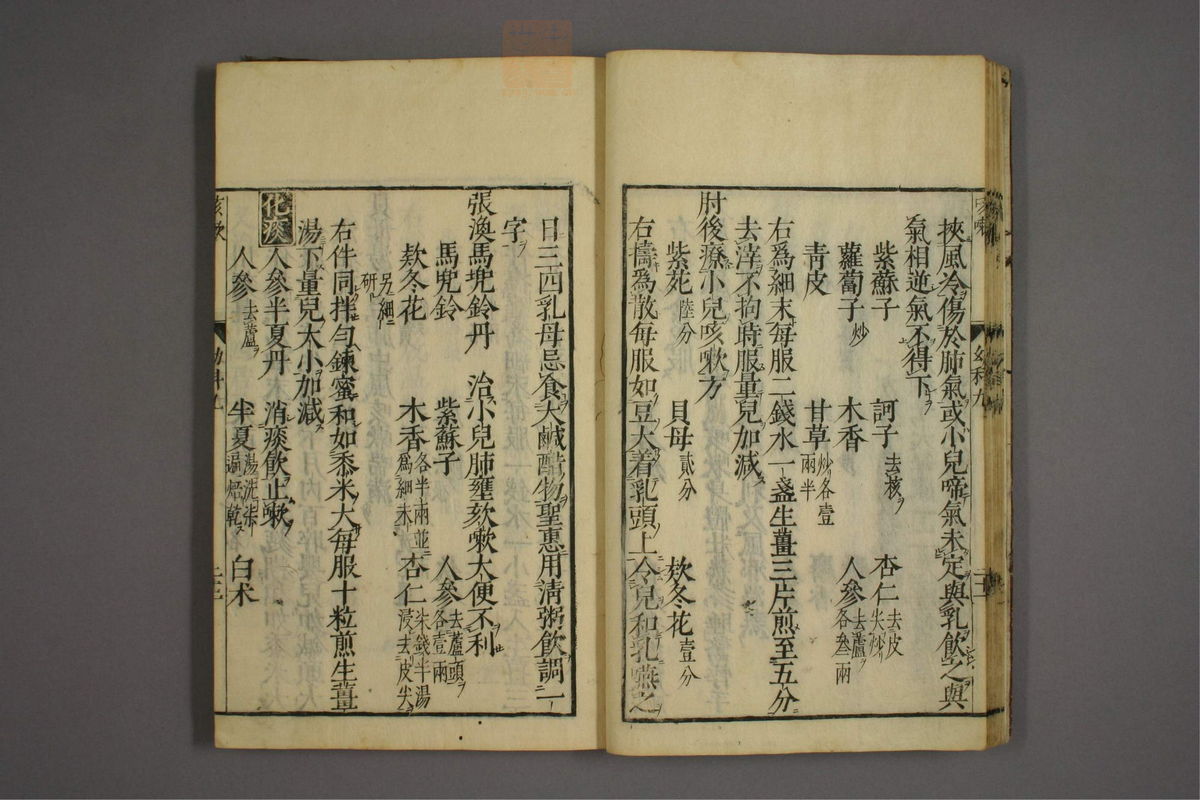 挾風冷傷於肺氣或小兒啼氣未定與乳飮之與
氣相逆氣不得下
紫蘇子 訶子去核 杏仁去皮尖炒
蘿蔔子炒 木香 人參去蘆各叄兩
靑皮 甘草炒各壹兩半
右爲細末每服二錢水一盞生薑三片煎至五分
去滓不拘時服量兒加減
肘後療小兒咳嗽方
紫菀陸分 貝母貳分 欵冬花壹分
右擣爲散每服如豆大着乳頭上令兒和乳嚥之
日三四乳母忌食大鹹醋物聖惠用淸粥飮調一
字
張渙馬兜鈴丹 治小兒肺壅欬嗽大便不利
馬兜鈴 紫蘇子 人參去蘆頭各壹兩
欵冬花 木香各半兩並爲細末 杏仁柒錢半湯浸去皮尖
另細研
右件同拌勻鍊蜜和如黍米大每服十粒煎生薑
湯下量兒大小加減
化痰 人參半夏丹 消痰飮止嗽
人參去蘆 半夏湯洗柒遍焙乾 白朮